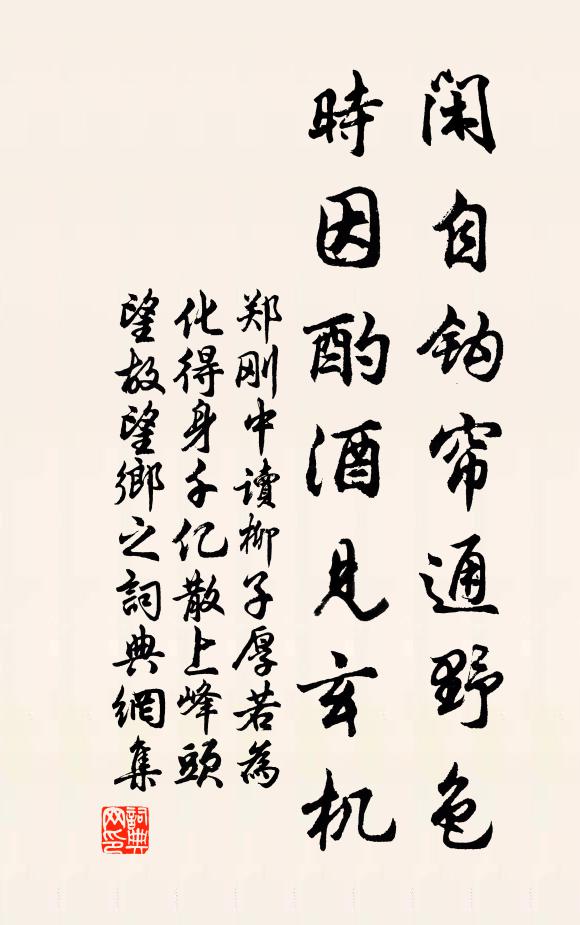 閑自鈎帘通野色
時因酌酒見玄机
郑剛中讀柳子厚若為
化得身千亿散上峰頭
望故望鄉之詞典網集
詞典
网印